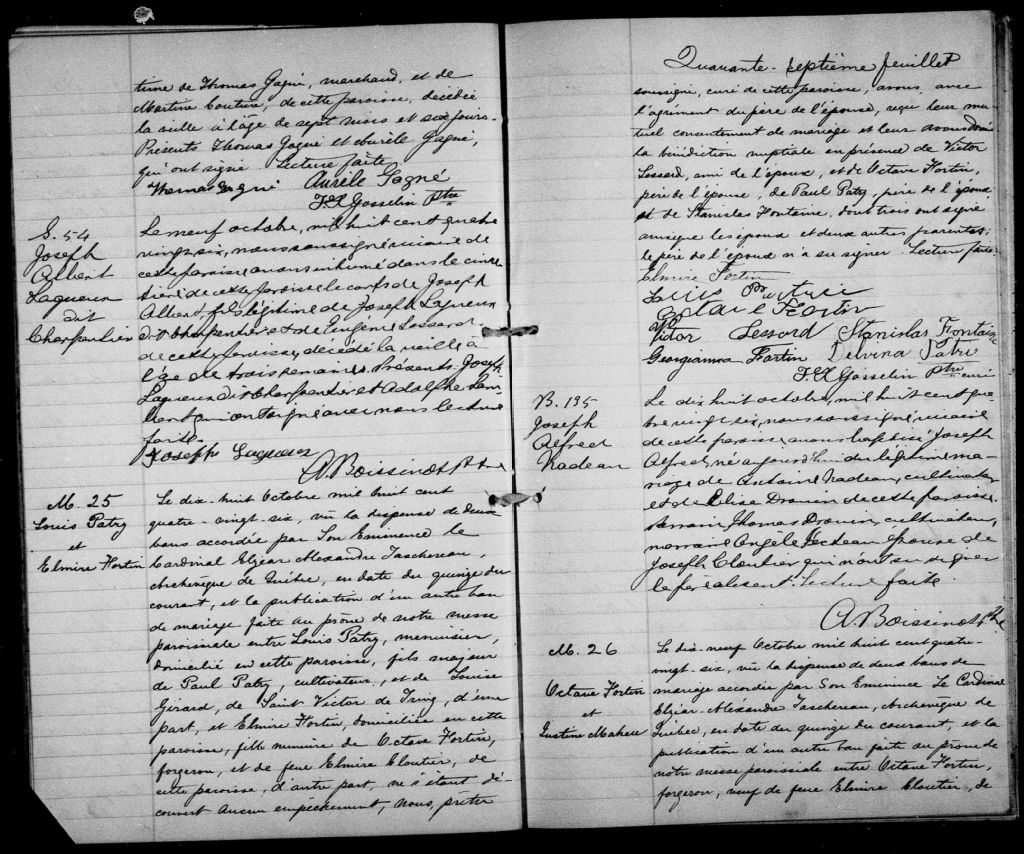 time de Thomas Gagné, marchand, et de
Martine Couture, de cette paroisse, décédée
la veille à l'âge de sept mois et six jours.
Présents Thomas Gagné et Aurèle Gagné,
qui ont signé Lecture faite
Thomas Gagné Aurèle Gagné
F.X Gosselin Ptre
S. 54
Joseph
Albert
Lagueux
dit
Charpentier
Le neuf octobre, mil huit cent quatre
vingt six, nous soussigné vicaire de
cette paroisse avons inhumé dans le cime
tière de cette paroisse le corps de Joseph
Albert, fils légitime de Joseph Lagueux
dit Charpentier et de Eugénie Lessard
de cette paroisse, décédé la veille, à
l'âge de trois semaines. Présents: Joseph
Lagueux dit Charpentier et Adolphe Lam
bert qui ont signé avec nous lecture
faite.
Joseph Lagueux
A. Boissinot Ptre
M. 25
Louis Patry
et
Elmire Fortin
Le dix-huit Octobre mil huit cent
quatre-vingt-six, vû la dispense de deux
bans accordée par Son Eminence le
Cardinal Elzéar Alexandre Taschereau,
Archevêque de Québec, en date du quinze du
courant, et la publication d'un autre ban
de mariage faite au prône de notre messe
paroissiale entre Louis Patry, menuisier,
domicilié en cette paroisse, fils majeur
de Paul Patry, cultivateur, et de Louise
Girard, de Saint Victor de Tring, d'une
part, et Elmire Fortin, domiciliée en cette
paroisse, fille mineure de Octave Fortin,
forgeron, et de feue Elmire Cloutier, de
cette paroisse, d'autre part, ne s'étant dé-
couvert aucun empêchement, nous, prêtre
Quarante-septième feuillet
soussigné, curé de cette paroisse, avons, avec
l'agrément du père de l'épouse, reçu leur mu-
tuel consentement de mariage et leur avons donné
la bénédiction nuptiale en présence de Victor
Lessard, ami de l'époux, et de Octave Fortin,
père de l'épouse, de Paul Patry, père de l'époux
et de Stanislas Fontaine, dont trois ont signé
ainsi que les époux et deux autres parentes;
le père de l'époux n'a su signer. Lecture faite.
Elmire Fortin
Louis Patry
Octave Fortin
Victor Lessord Stanislas Fontaine
Georgianna Fortin Delvina Patry
F.X Gosselin Ptre curé
B. 135
Joseph
Alfred
Nadeau
Le dix huit octobre, mil huit cent qua
tre vingt six, nous soussigné vicaire
de cette paroisse avons baptisé Joseph
Alfred, né aujourd'hui du légitime ma-
riage de Antoine Nadeau, cultivateur
et de Elise Drouin de cette paroisse.
Parrain Thomas Drouin, cultivateur,
marraine Angèle Fecteau épouse de
Joseph Cloutier qui n'ont su signer
le père absent. Lecture faite.
A. Boissinot Ptre
M. 26
Octave Fortin
et
Justine Maheu
Le dix-neuf Octobre mil huit cent quatre-
vingt-six, vû la dispense de deux bans de
mariage accordée par Son Eminence Le Cardinal
Elzéar-Alexandre Taschereau, Archevêque de
Québec, en date du quinze du courant, et la
publication d'un autre ban faite au prône de
notre messe paroissiale entre Octave Fortin,
forgeron, veuf de feue Elmire Cloutier, de